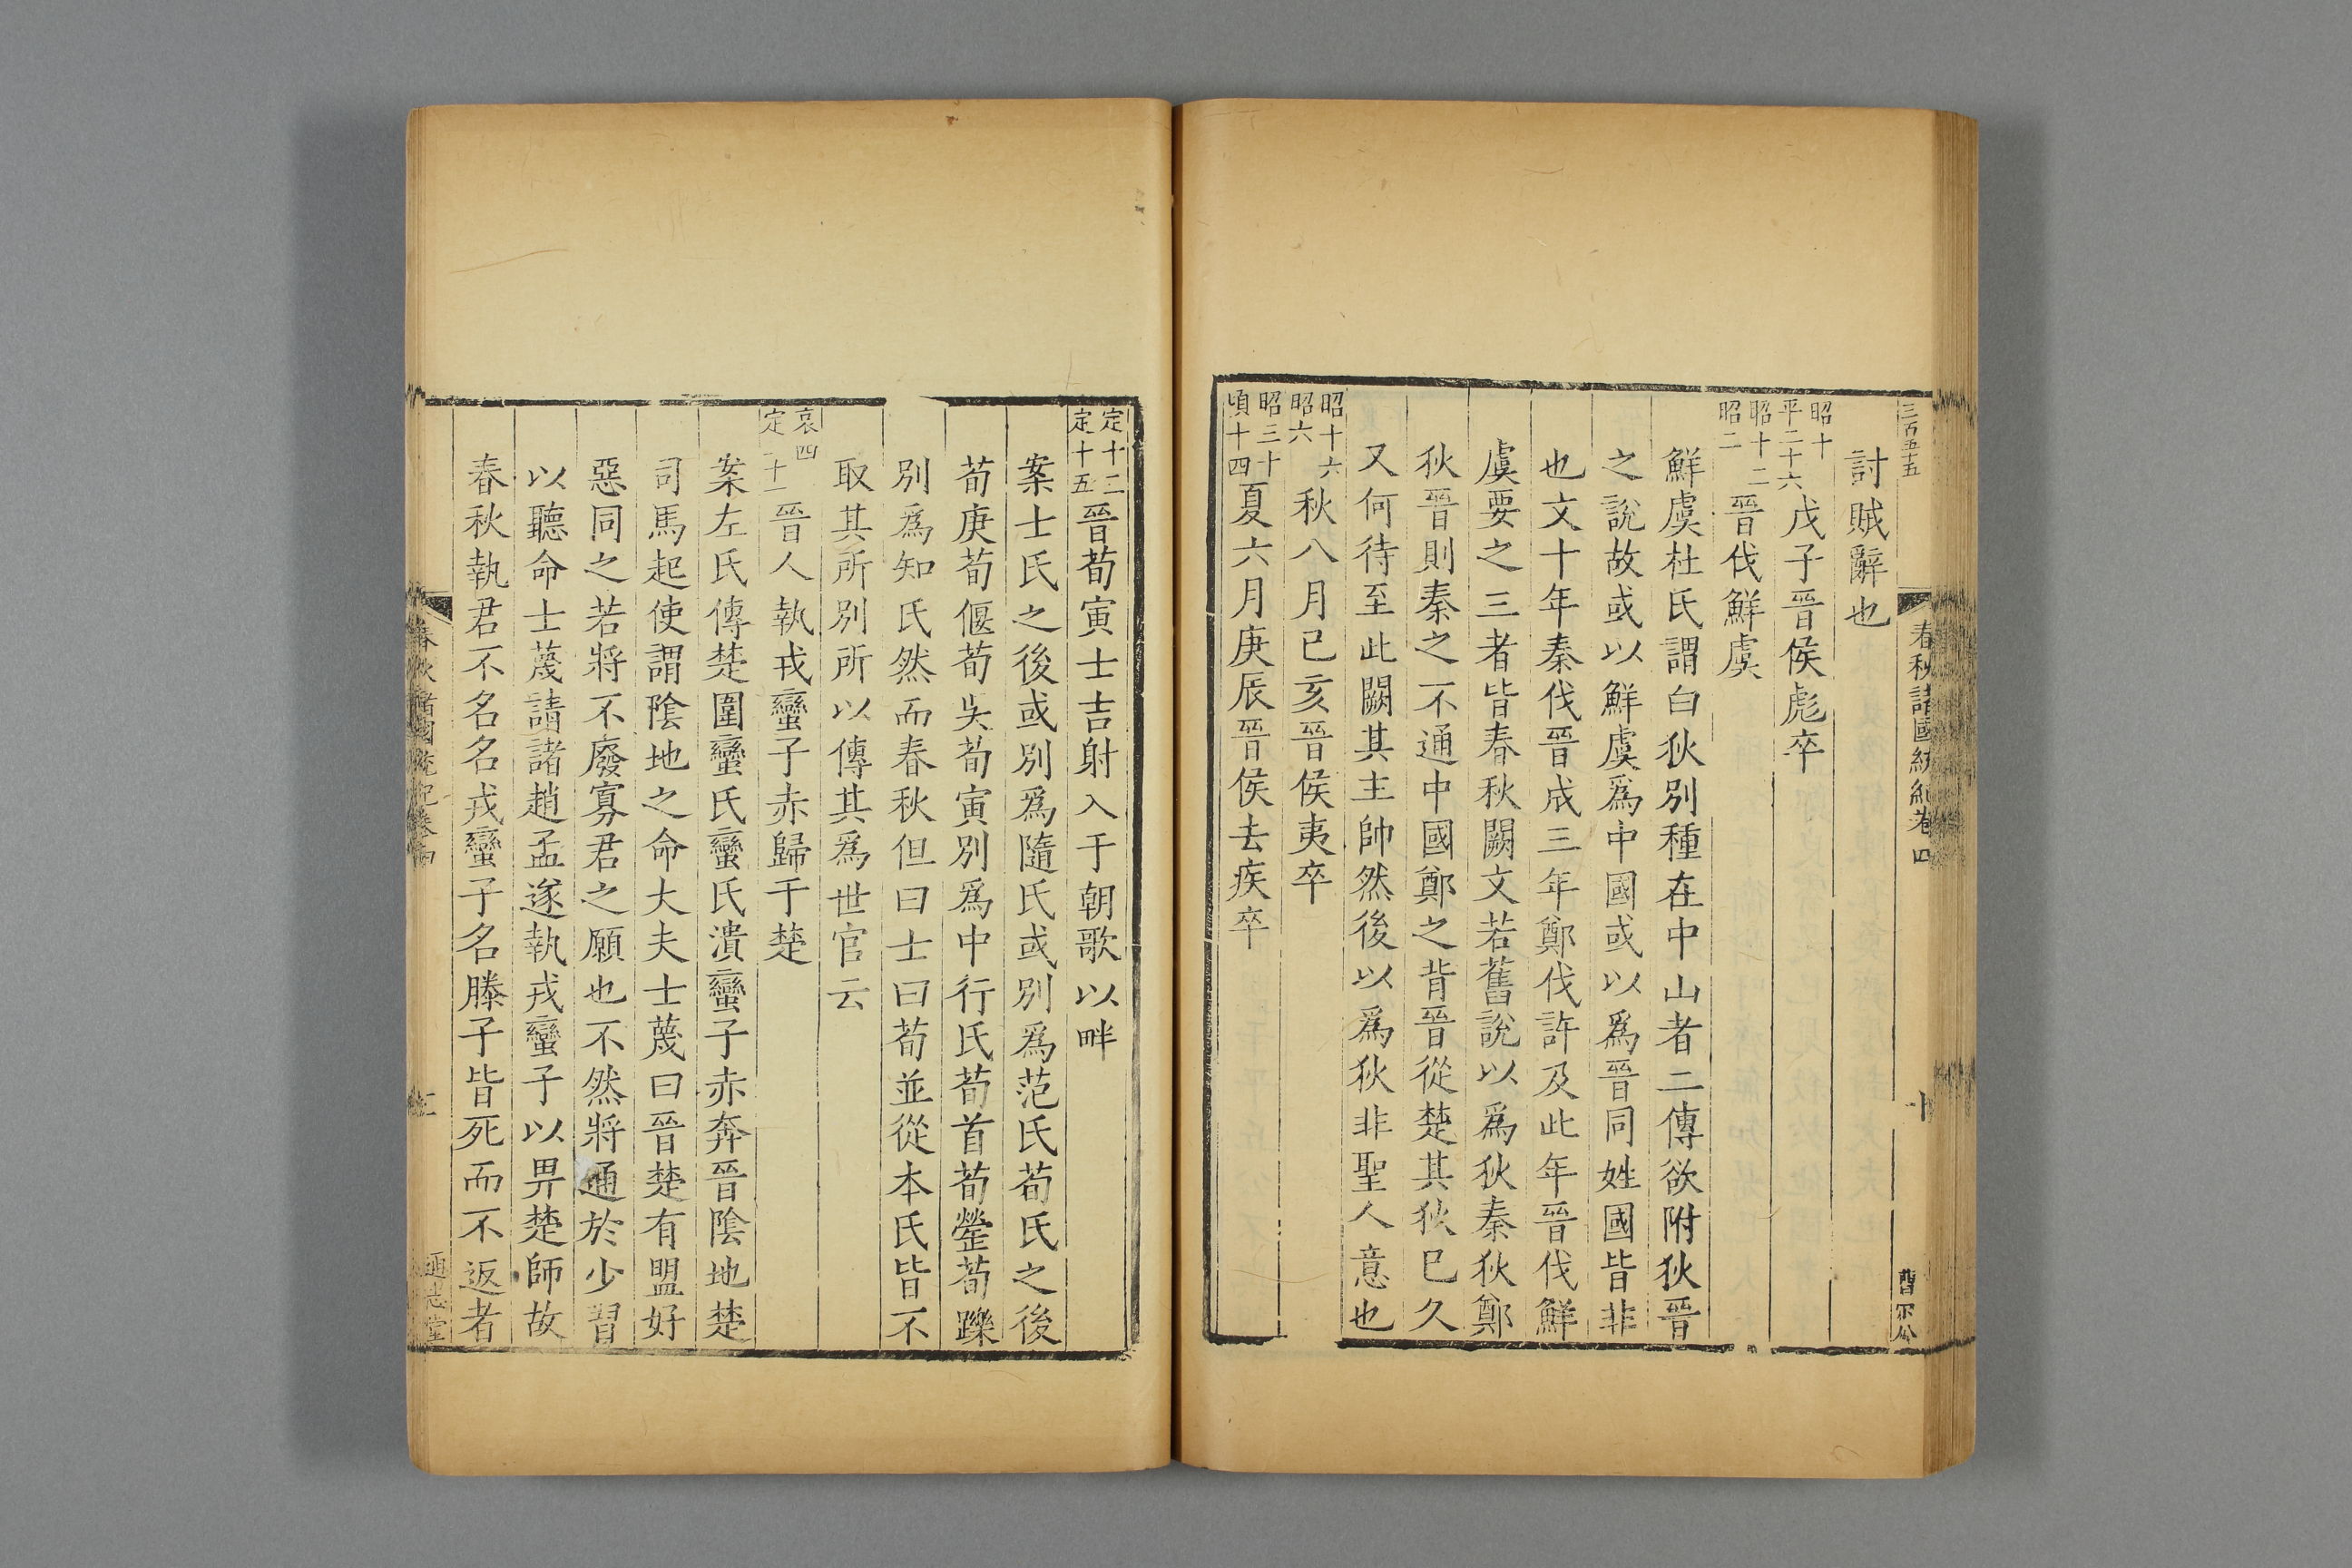 三百五十五
春秋諸國統紀卷四
十
曹不公
討賊辭也
昭十
平二十六
戊子晉侯彪卒
昭十二
昭二
晉伐鮮虞
鮮虞杜氏謂白狄別種在中山者二傳欲附狄晉
之說故或以鮮虞爲中國或以爲晉同姓國皆非
也文十年秦伐晉成三年鄭伐許及此年晉伐鮮
虞要之三者皆春秋闕文若舊說以爲狄秦狄鄭
狄晉則秦之不通中國鄭之背晉從楚其狄巳久
又何待至此闕其主帥然後以爲狄非聖人意也
昭十六
昭六
秋八月已亥晉侯夷卒
昭三十
頃十四
夏六月庚辰晉侯去疾卒
定十二
定十五
晉荀寅士吉射入于朝歌以畔
案士氏之後或別爲隨氏或別爲范氏荀氏之後
荀庚荀偃荀吳荀寅別爲中行氏荀首荀罃荀躒
別爲知氏然而春秋但曰士曰荀並從本氏皆不
取其所別所以傳其爲世官云
哀四
定二十一
晉人執戎蠻子赤歸于楚
案左氏傳楚圍蠻氏蠻氏潰蠻子赤奔晉陰地楚
司馬起使謂陰地之命大夫士蔑曰晉楚有盟好
惡同之若將不廢寡君之願也不然將通於少習
以聽命士蔑請諸趙孟遂執戎蠻子以畀楚師故
春秋執君不名名戎蠻子名滕子皆死而不返者
春秋諸國統紀卷四
通志堂